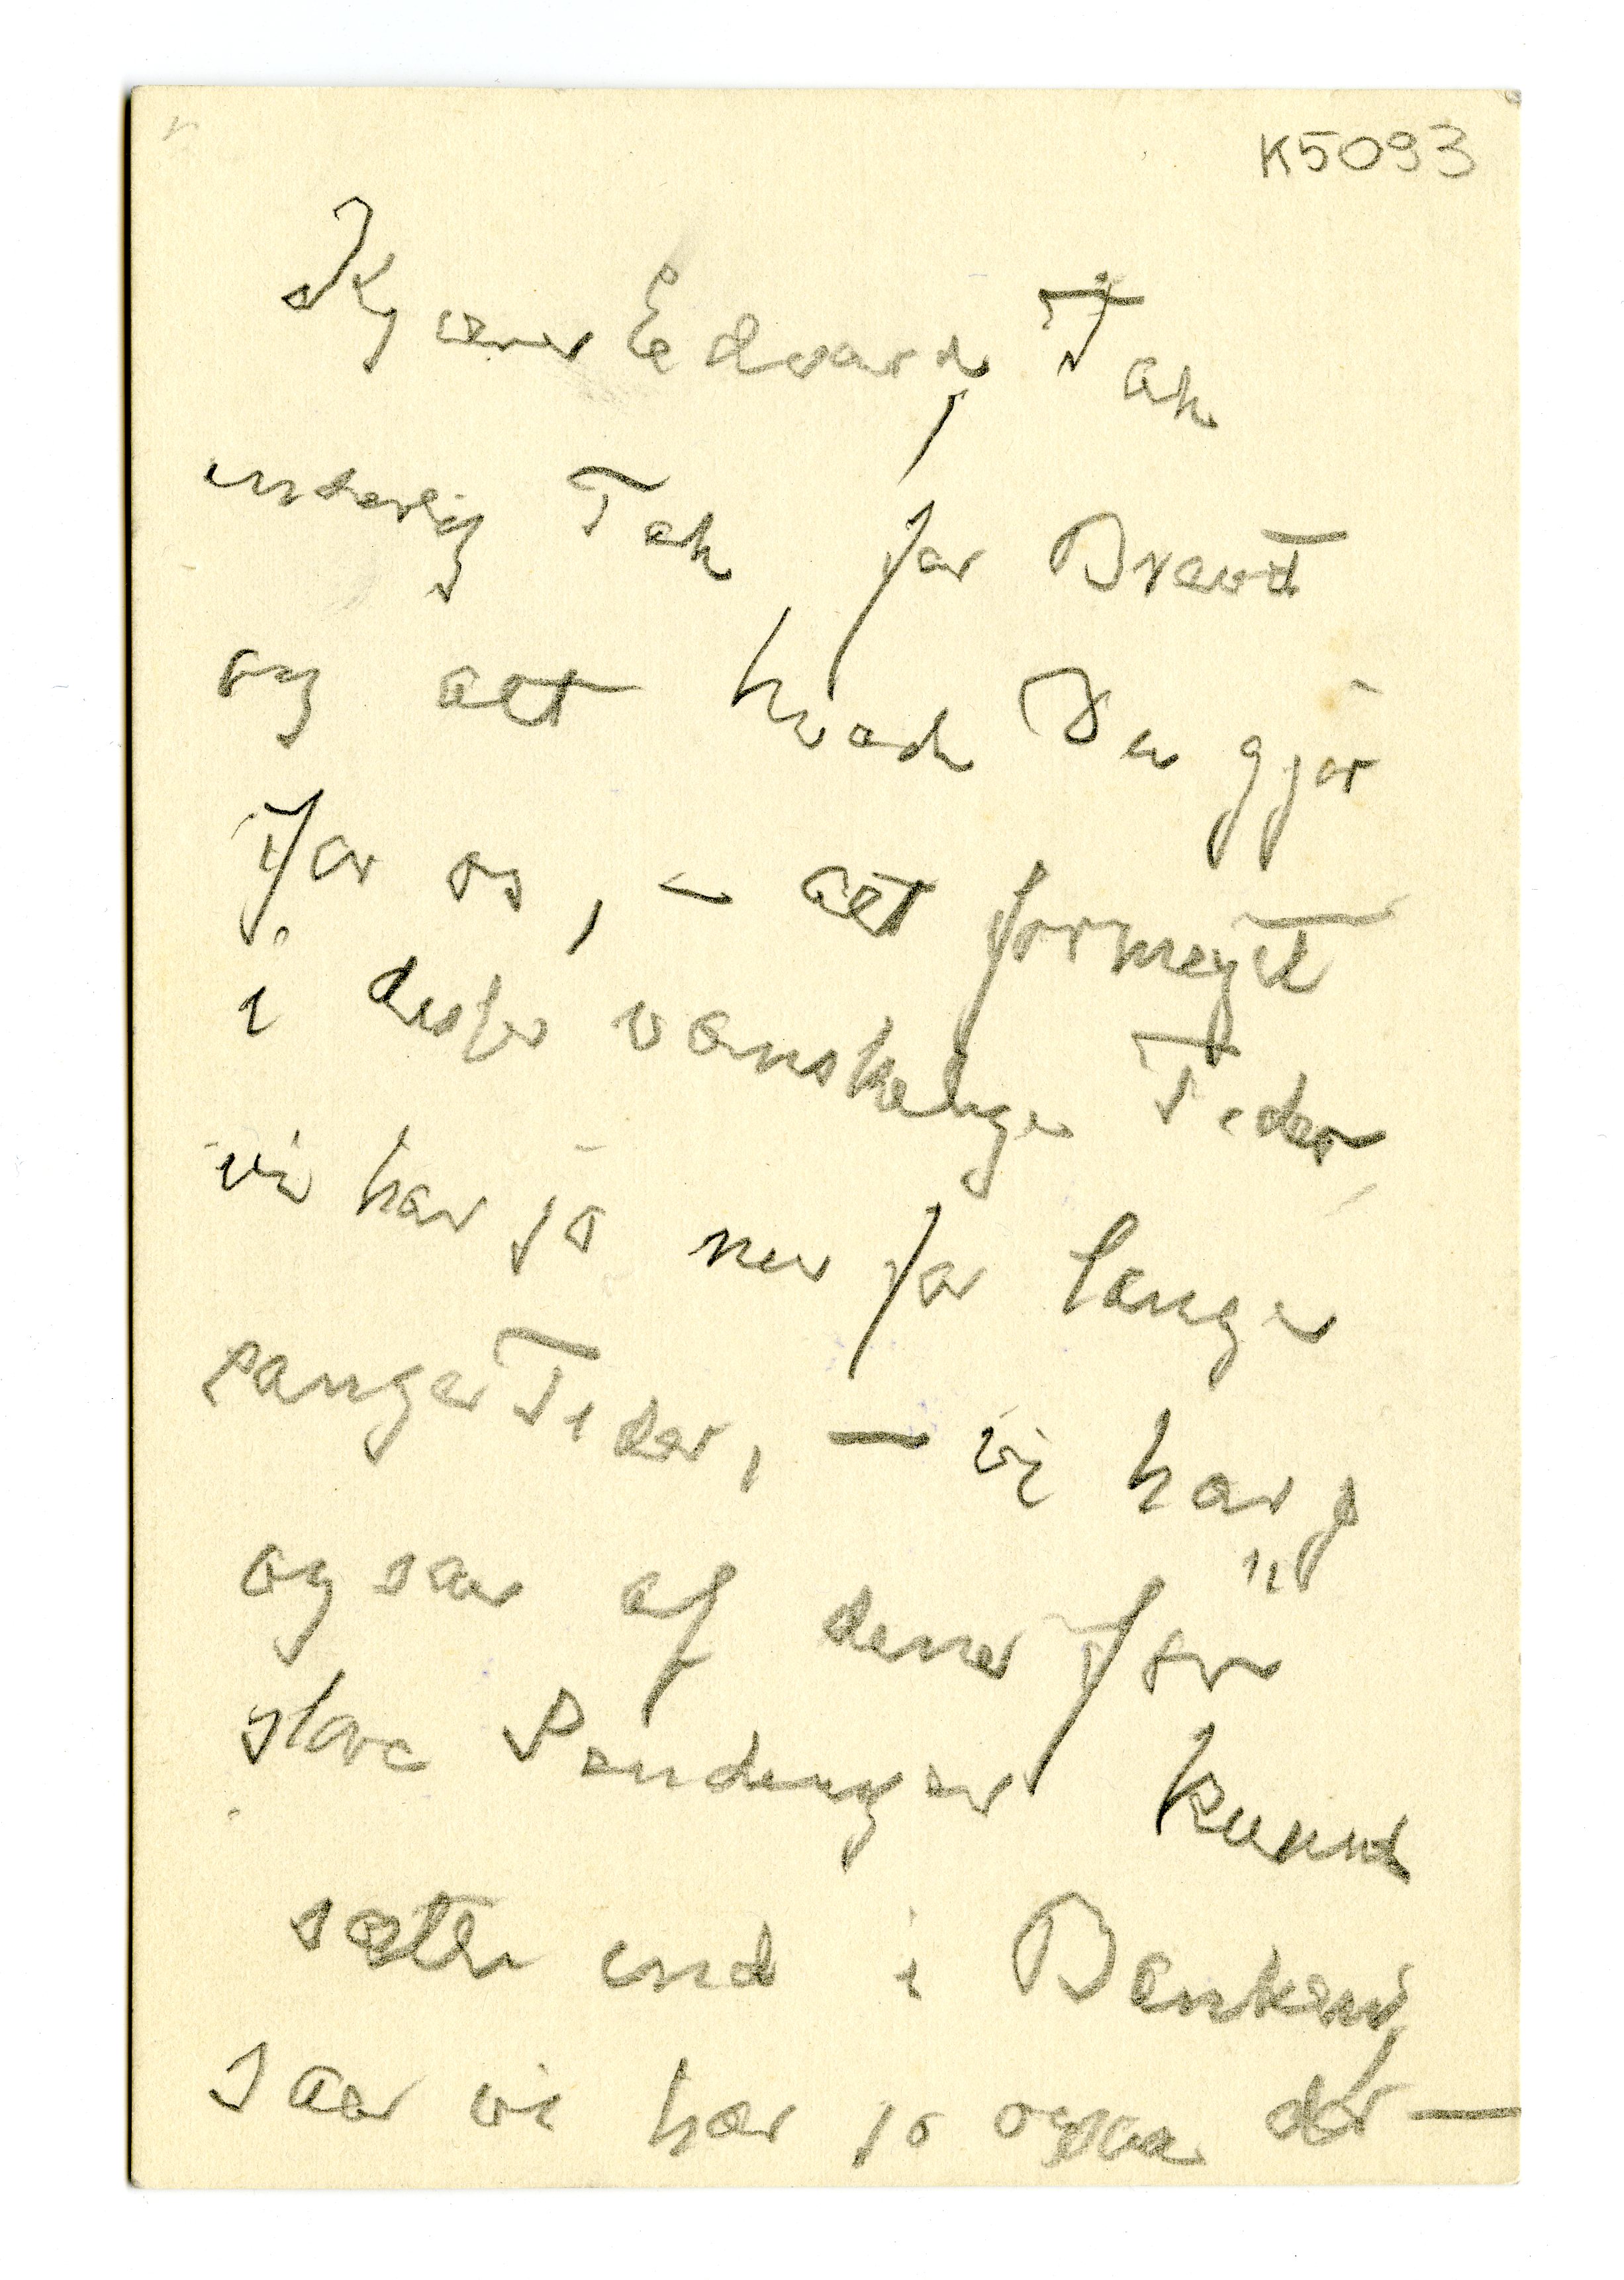 K5093
Kjære Edvard, Tak
inderlig Tak for Brevet
og alt hvad Du gjør
for os, – alt formeget
i disse vanskelige Tider,
vi har jo nu for lange
lange Tider, — vi har jo
ogsaa af denne for
store Sendinger kunnet
sætte ind i Banken,
saa vi har jo ogsaa der —